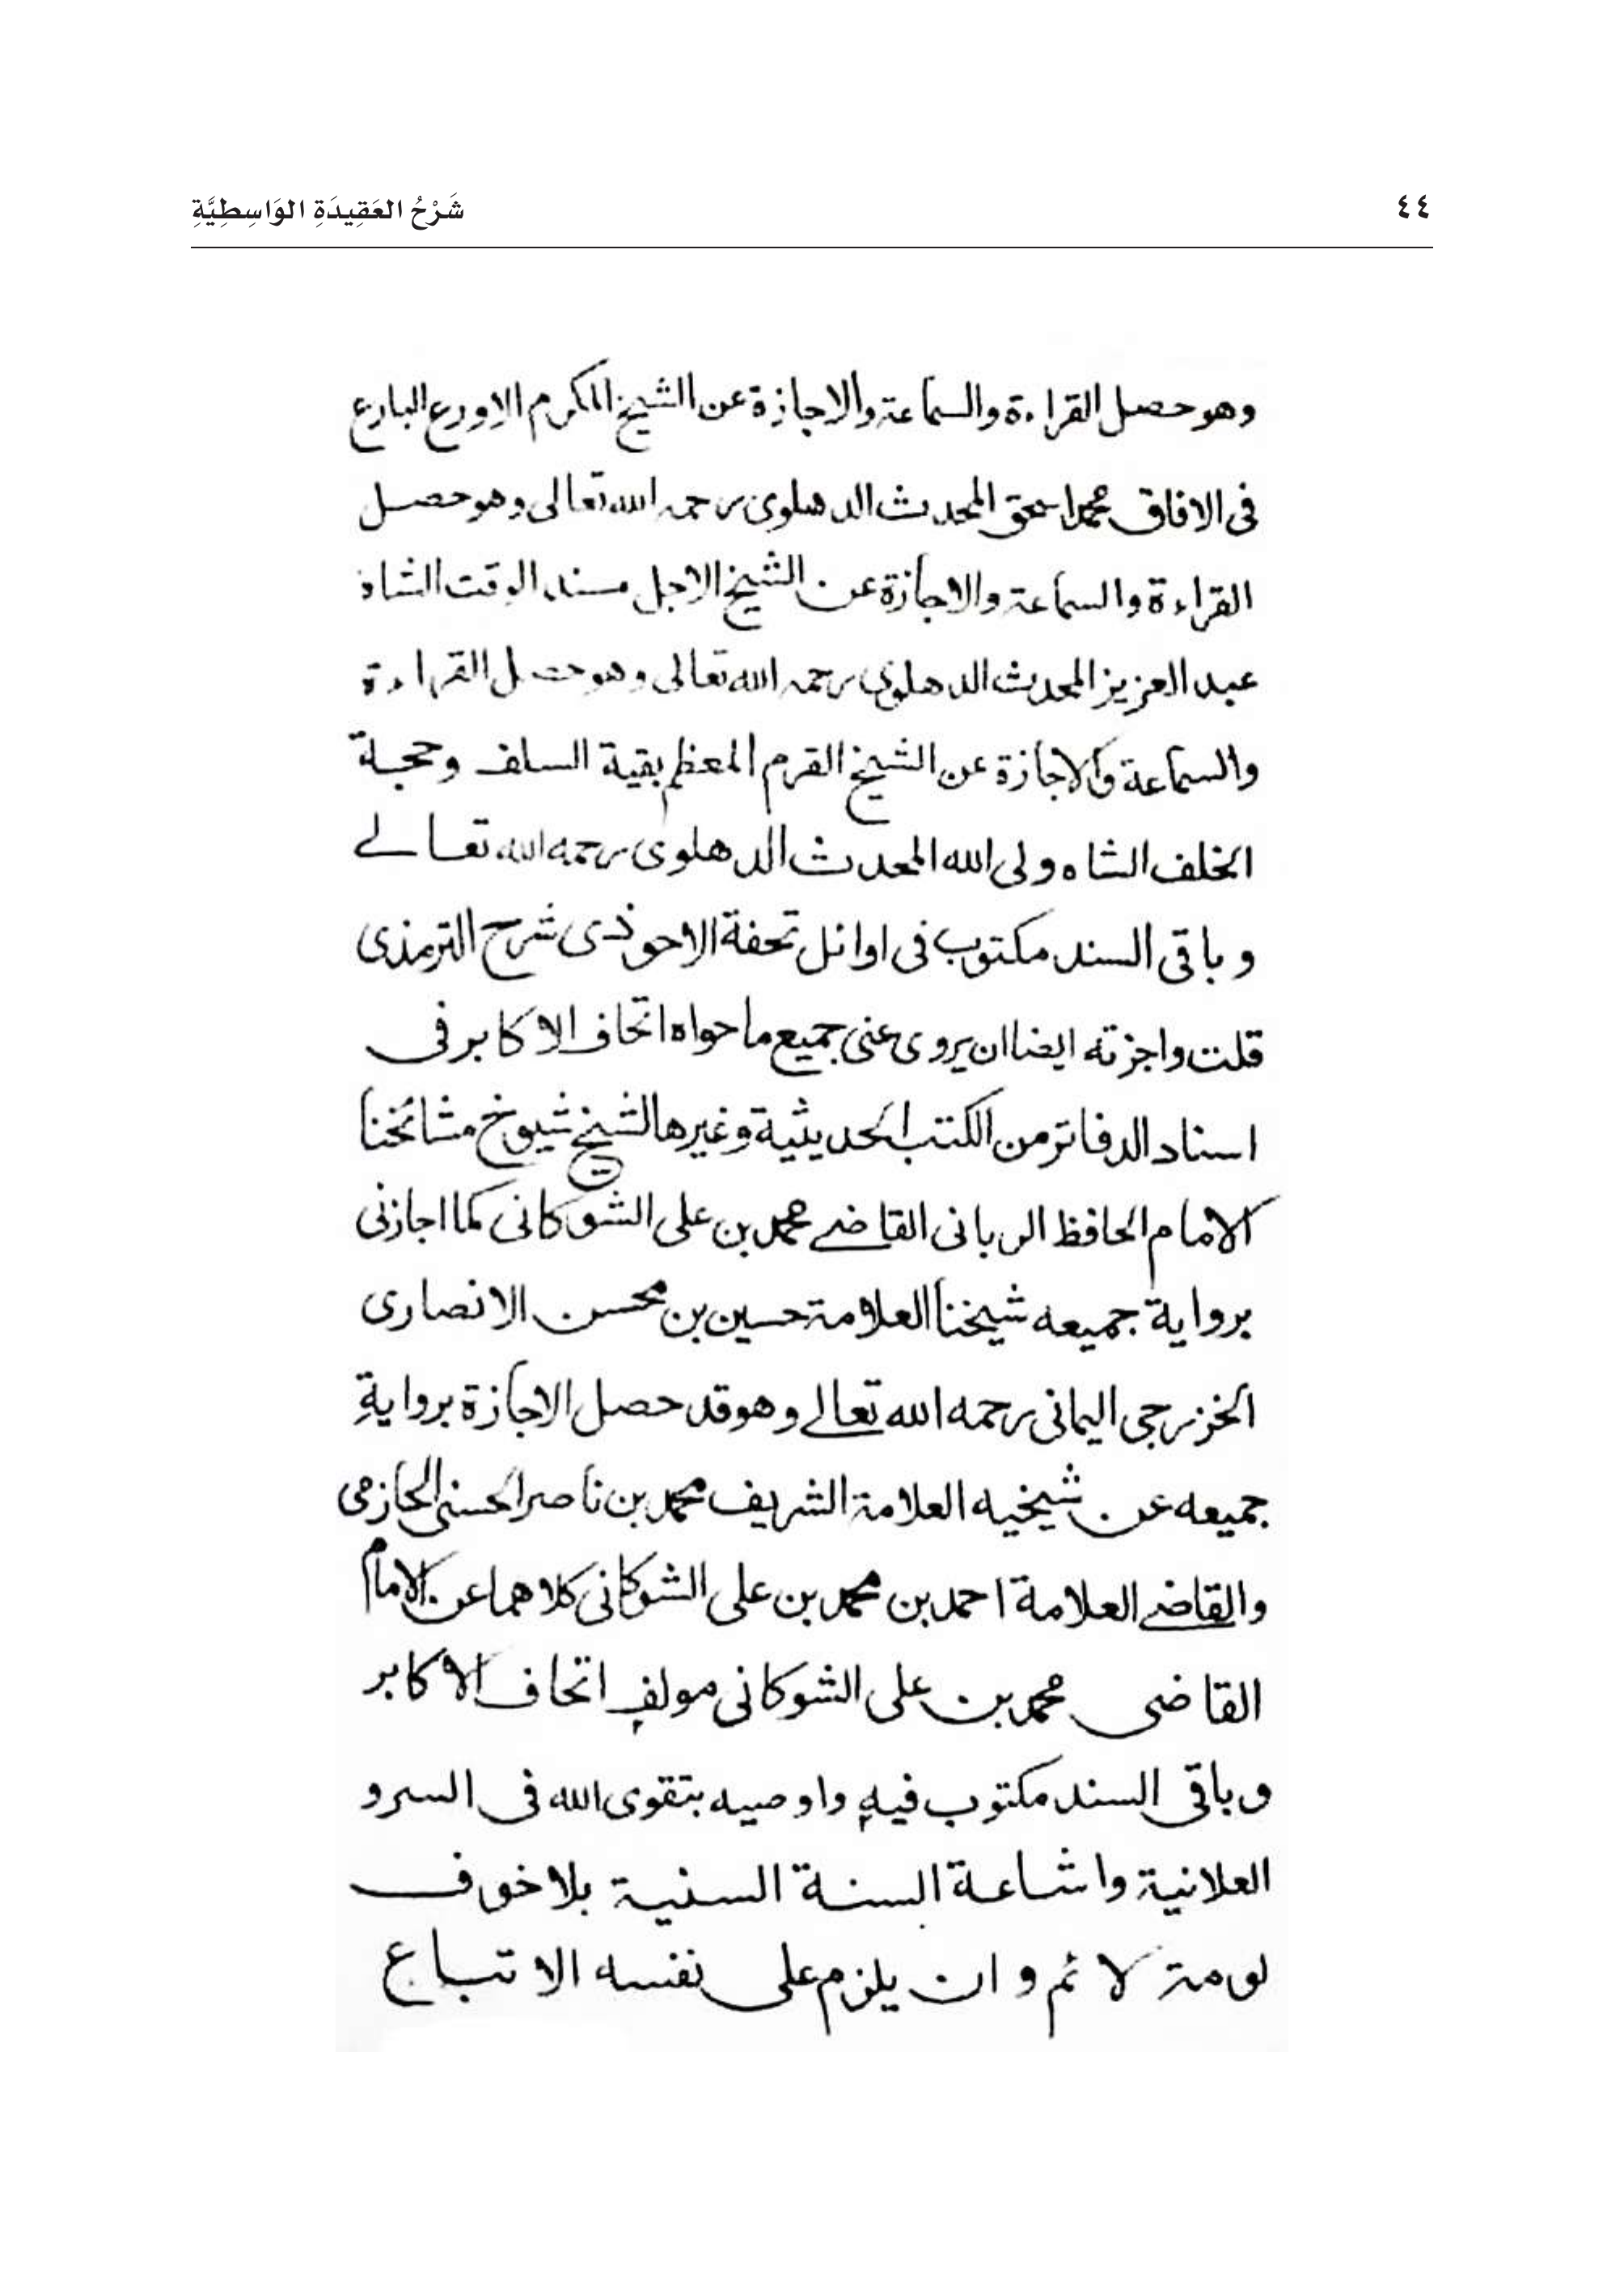 ٤٤ شَرْحُ العَقِيدَةِ الوَاسِطِيَّةِ
وهو حصل القراءة والسماعة والاجازة عن الشيخ المكرم الاورع البارع
فى الافاق محمد اسحق المحدث الدهلوى رحمه الله تعالى وهو حصل
القراءة والسماعة والاجازة عن الشيخ الاجل مسند الوقت الشاه
عبد العزيز المحدث الدهلوى رحمه الله تعالى وهو حصل القراءة
والسماعة والاجازة عن الشيخ القرم المعظم بقية السلف وحجة
الخلف الشاه ولى الله المحدث الدهلوى رحمه الله تعالے
وباقى السند مكتوب فى اوائل تحفة الاحوذى شرح الترمذى
قلت واجزته ايضا ان يروى عنى جميع ما حواه اتحاف الاكابر فى
اسناد الدفاتر من الكتب الحديثية وغيرها الشيخ شيوخ مشائخنا
الامام الحافظ الربانى القاضے محمد بن على الشوكانى كما اجازنى
برواية جميعه شيخنا العلامة حسين بن محسن الانصارى
الخزرجى اليمانى رحمه الله تعالے وهو قد حصل الاجازة برواية
جميعه عن شيخيه العلامة الشريف محمد بن ناصر الحسنى الحازمى
والقاضے العلامة احمد بن محمد بن على الشوكانى كلاهما عن الامام
القاضى محمد بن على الشوكانى مولف اتحاف الاكابر
وباقى السند مكتوب فيه واوصيه بتقوى الله فى السر و
العلانية واشاعة السنة السنية بلا خوف
لومة لائم وان يلزم على نفسه الاتباع